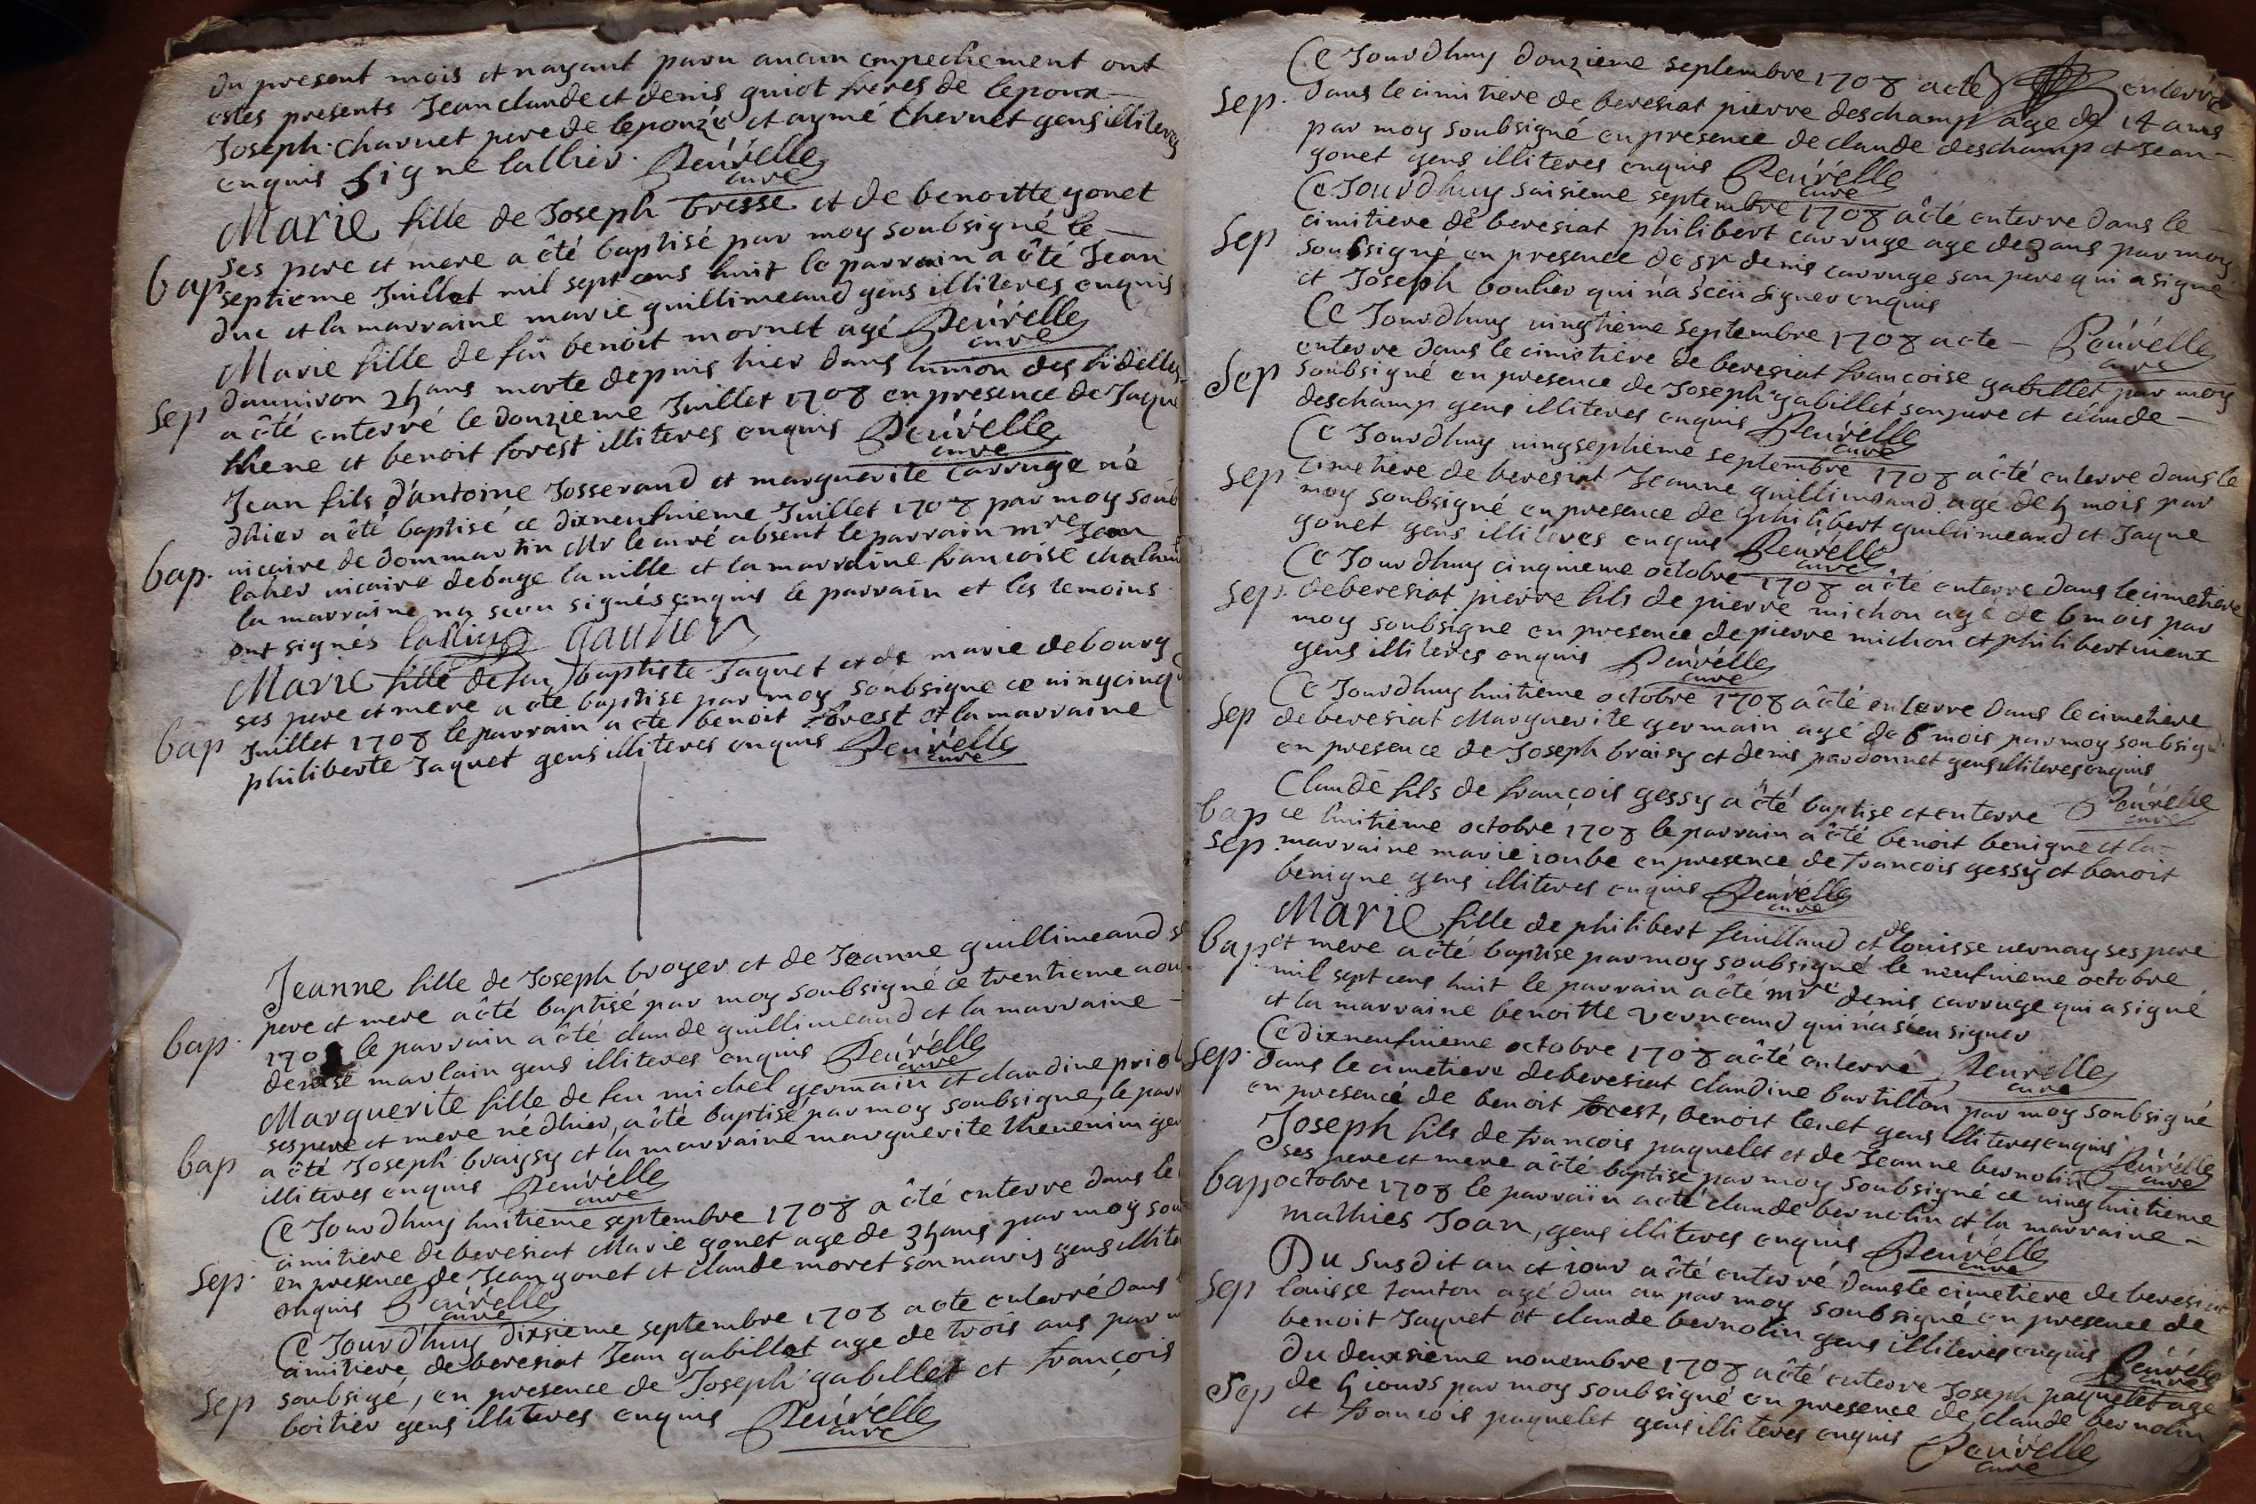 du present mois et nayant paru aucun empechement ont
estes presents Jean claude et denis guiot freres de lepoux
Joseph Charnet pere de lepouzé et aymé Chernet gens illiteres
enquis signe lallier. Reúrélle
curé
Marie fille de Joseph bresse et de benoitte gonet
ses pere et mere a êté baptisé par moy soubsigné le
bap septieme Juillet mil sept cens huit le parrain a êté Jean
duc et la marraine marie guillimeaud gens illiteres enquis
Reúrélle
curé
Marie fille de feu benoit mornet agé
daunviron 25 ans morte depuis hier dans lunion des fidelles
Sep a êté enterré le douzieme Juillet 1708 en presence de Jaque
thene et benoit forest illiteres enquis Reúrélle
curé
Jean fils d'antoine Josserand et marguerite carruge né
dhier a êté baptisé ce dixneufuieme Juillet 1708 par moy soub
bap. uicaire de dommartin Mr le curé absent le parrain mre Jean
uicaire de bage la uille et la marraine francoise
la marraine na sceu signés enquis le parrain et les temoins
ont signés lallier gautier
Marie fille de feu Jbaptiste Jaquet et de marie debourg
ses pere et mere a ete baptise par moy soubsigne ce uingcinq
bap Juillet 1708 le parrain a ete benoit forest et la marraine
philiberte Jaquet gens illiteres enquis Reúrélle
curé
Jeanne fille de Joseph broyer et de Jeanne guillimeaud
pere et mere a êté baptisé par moy soubsigné ce trentieme aou
bap. 1708 le parrain a êté claude guillimeaud et la marraine
denise marlain gens illiteres enquis Reúrélle
curé
Marguerite fille de feu michel germain et claudine
ses pere et mere né dhier, a êté baptisé par moy soubsigne, le parr
bap a êté Joseph braysy et la marraine marguerite theuenin
illiteres enquis Reúrélle
curé
Ce Jourdhuy huitieme septembre 1708 a êté enterre dans le
cimitiere de beresiat Marie gonet age de 35 ans par moy sou
Sep. en presence de Jean gonet et claude moret son marij gens illite
enquis Reúrélle
curé
Ce Jourd'huy dixsieme septembre 1708 a ete enterré dans
cimitiere de beresiat Jean gabillet age de trois ans par
Sep soubsigé, en presence de Joseph gabillet et françois
boitier gens illiteres enquis Reúrélle
curé
Ce Jourdhuy douzieme septembre 1708 a ete enterré
Sep. dans le cimitiere de beresiat pierre deschamp age de 14 ans
par moy soubsigné en presence de claude deschamp et Jean
gonet gens illiteres enquis Reúrélle
curé
Ce Jourdhuy saisieme septembre 1708 a êté enterre dans le
Sep cimitiere de beresiat philibert carruge age de 3 ans par moy
soubsigné en presence de sr denis carruge son pere qui a signé
et Joseph boulier qui n'a sceu signer enquis
Reúrélle
curé
Ce Jourdhuy uingtieme septembre 1708 a ete
enterre dans le cimitiere de beresiat francoise gabillet par moy
Sep soubsigné en presence de Joseph gabillet son pere et claude
deschamp gens illiteres enquis Reúrélle
curé
Ce Jourdhuy uingseptieme septembre 1708 a êté enterre dans le
Sep cimetiere de beresiat Jeanne guillimeaud age de 5 mois par
moy soubsigné en presence de philibert guillimeaud et Jaque
gonet gens illiteres enquis Reúrélle
curé
Ce Jourdhuy cinquieme octobre 1708 a êté enterre dans le cimetiere
Sep. de beresiat pierre fils de pierre michon agé de 6 mois par
moy soubsigne en presence de pierre michon et philibert
gens illiteres enquis Reúrélle
curé
Ce Jourdhuy huitieme octobre 1708 a êté enterre dans le cimetiere
Sep de beresiat Marguerite germain agé de 6 mois par moy soubsigné
en presence de Joseph braisy et denis pardonnet gens illiteres enquis
Reúrélle
curé
Claude fils de françois gessy a êté baptise et enterre
bap ce huitieme octobre 1708 le parrain a êté benoit benigne et la
Sep. marraine marie ioube en presence de francois gessy et benoit
benigne gens illiteres enquis Reúrélle
curé
Marie fille de philibert feuilland et de louisse uernay ses pere
bap et mere a êté baptise par moy soubsigné le neufuieme octobre
mil sept cens huit le parrain a êté mre denis carruge qui a signé
et la marraine benoitte Verneaud qui n'a sceu signer
Reúrélle
curé
Ce dixneufuieme octobre 1708 a êté enterré
Sep. dans le cimetiere de beresiat claudine bartillon par moy soubsigné
en presence de benoit forest, benoit tenet gens illiteres enquis
Reúrélle
curé
Joseph fils de francois paquelet et de Jeanne bernolin
ses pere et mere a êté baptise par moy soubsigné ce uinghuitieme
bap octobre 1708 le parrain a êté claude bernolin et la marraine
mathies Joan, gens illiteres enquis Reúrélle
curé
Du susdit an et iour a êté enterré dans le cimetiere de beresiat
Sep louisse tonton agé dun an par moy soubsigné en presence de
benoit Jaquet et claude bernolin gens illiteres enquis
Reúrélle
curé
Du deuxsieme nouembre 1708 a êté enterre Joseph paquelet age
Sep de 5 iours par moy soubsigné en presence de claude bernolin
et francois paquelet gens illiteres enquis
Reúrélle
curé